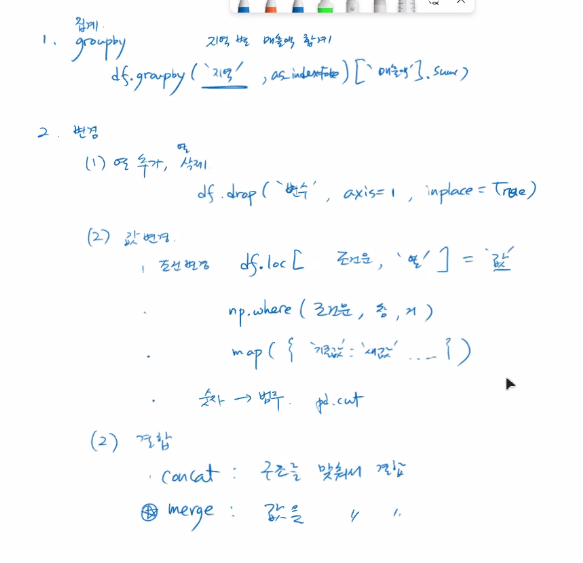 집계
1. groupby 지역 별 매출액 합계
df.groupby('지역', as_index=False)['매출액'].sum()
2. 변경
(1) 열 추가, 열 삭제
df.drop('변수', axis=1, inplace=True)
(2) 값 변경.
· 조건변경 df.loc[ 조건문, '열' ] = '값'
· np.where(조건문, 참, 거)
· map({'기존값': '새값' ....})
· 숫자 → 범주. pd.cut
(2) 결합
· concat : 구조를 맞춰서 결합
⊛ merge : 값을 〃 〃